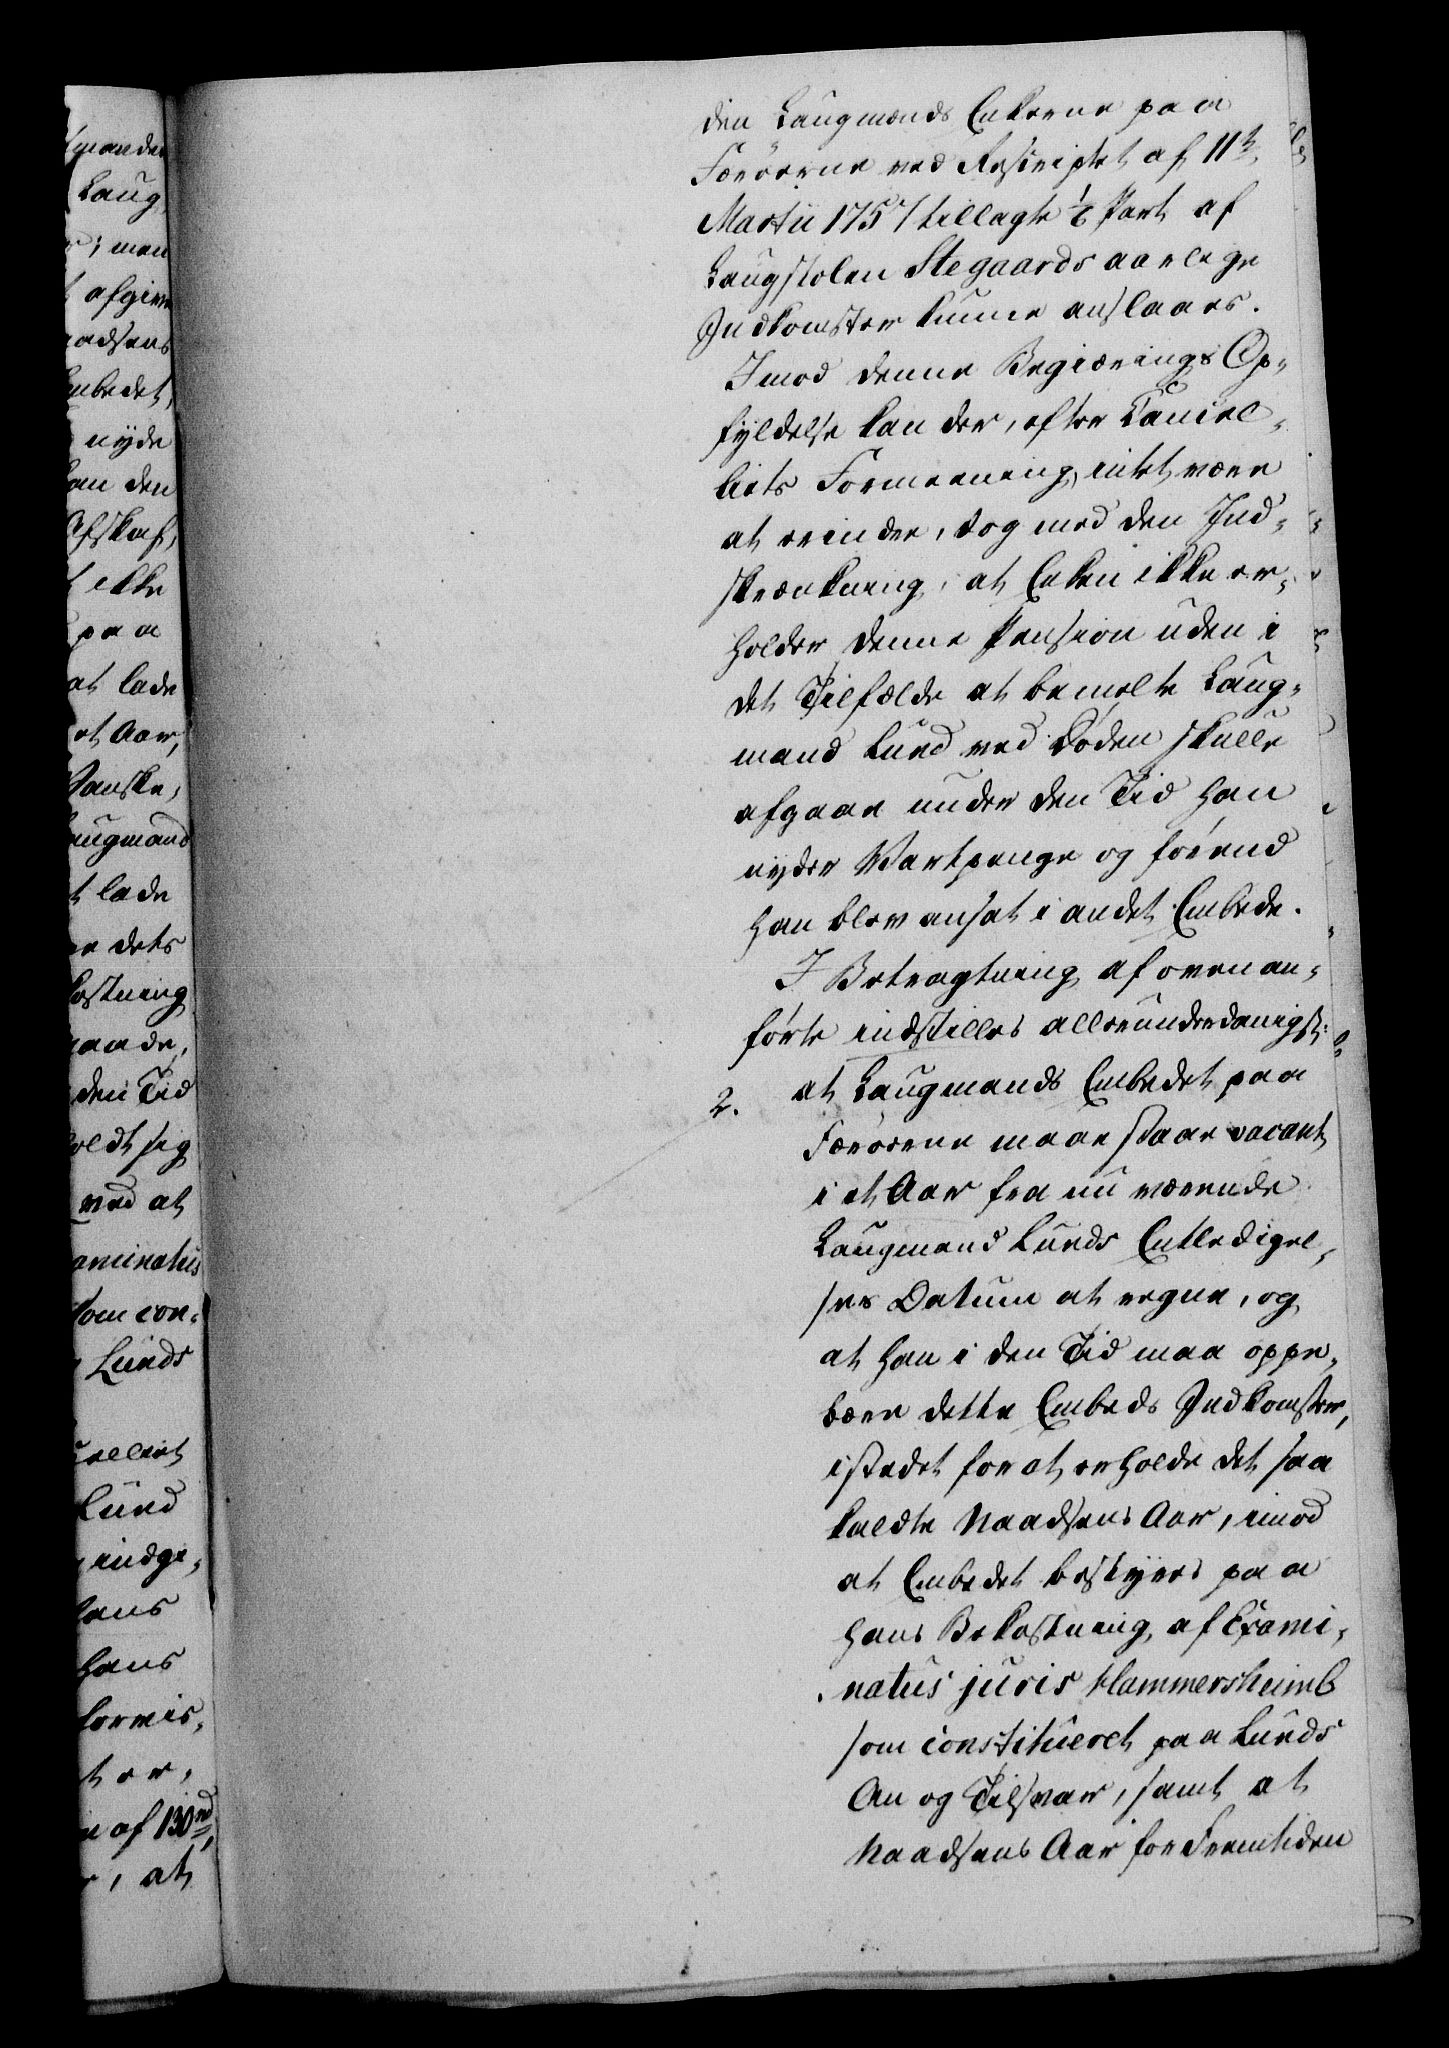 den Laugmænds Enkerne paa
Færöerne ved Rescriptet af 11te
Martii 175⁠7 tillagte ½ Part af
Laugstolen Stegaards aarlige
Indkomster kunne anslaaes.
Imod denne Begiærings Op-
fyldelse kan der, efter Cancel-
liets Formeening, intet være
at erindre, dog med den Ind-
skrænkning, at Enken ikke er-
holder denne Pension uden i
det Tilfælde at bemelte Laug-
mand Lund ved Døden skulle
afgaae under den Tid han
nyder Vartpenge og førend
han blev ansat i andet Embede.
I Betragtning af ovenan-
førte indstilles allerunderdanigst:
2. at Laugmands Embedet paa
Færöerne maae staae vacant
i et Aar fra nu værende
Laugmand Lunds Entledigel-
ses Datum at regne, og
at han i den Tid maa oppe-
bære dette Embeds Indkomster,
istedet for at erholde det saa
kaldte Naadsens Aar, imod
at Embedet bestyres paa
hans Bekostning af Exami-
natus juris Hammersheimb
som constitueret paa Lunds
An og Tilsvar, samt at
Naadsens Aar for Fremtiden